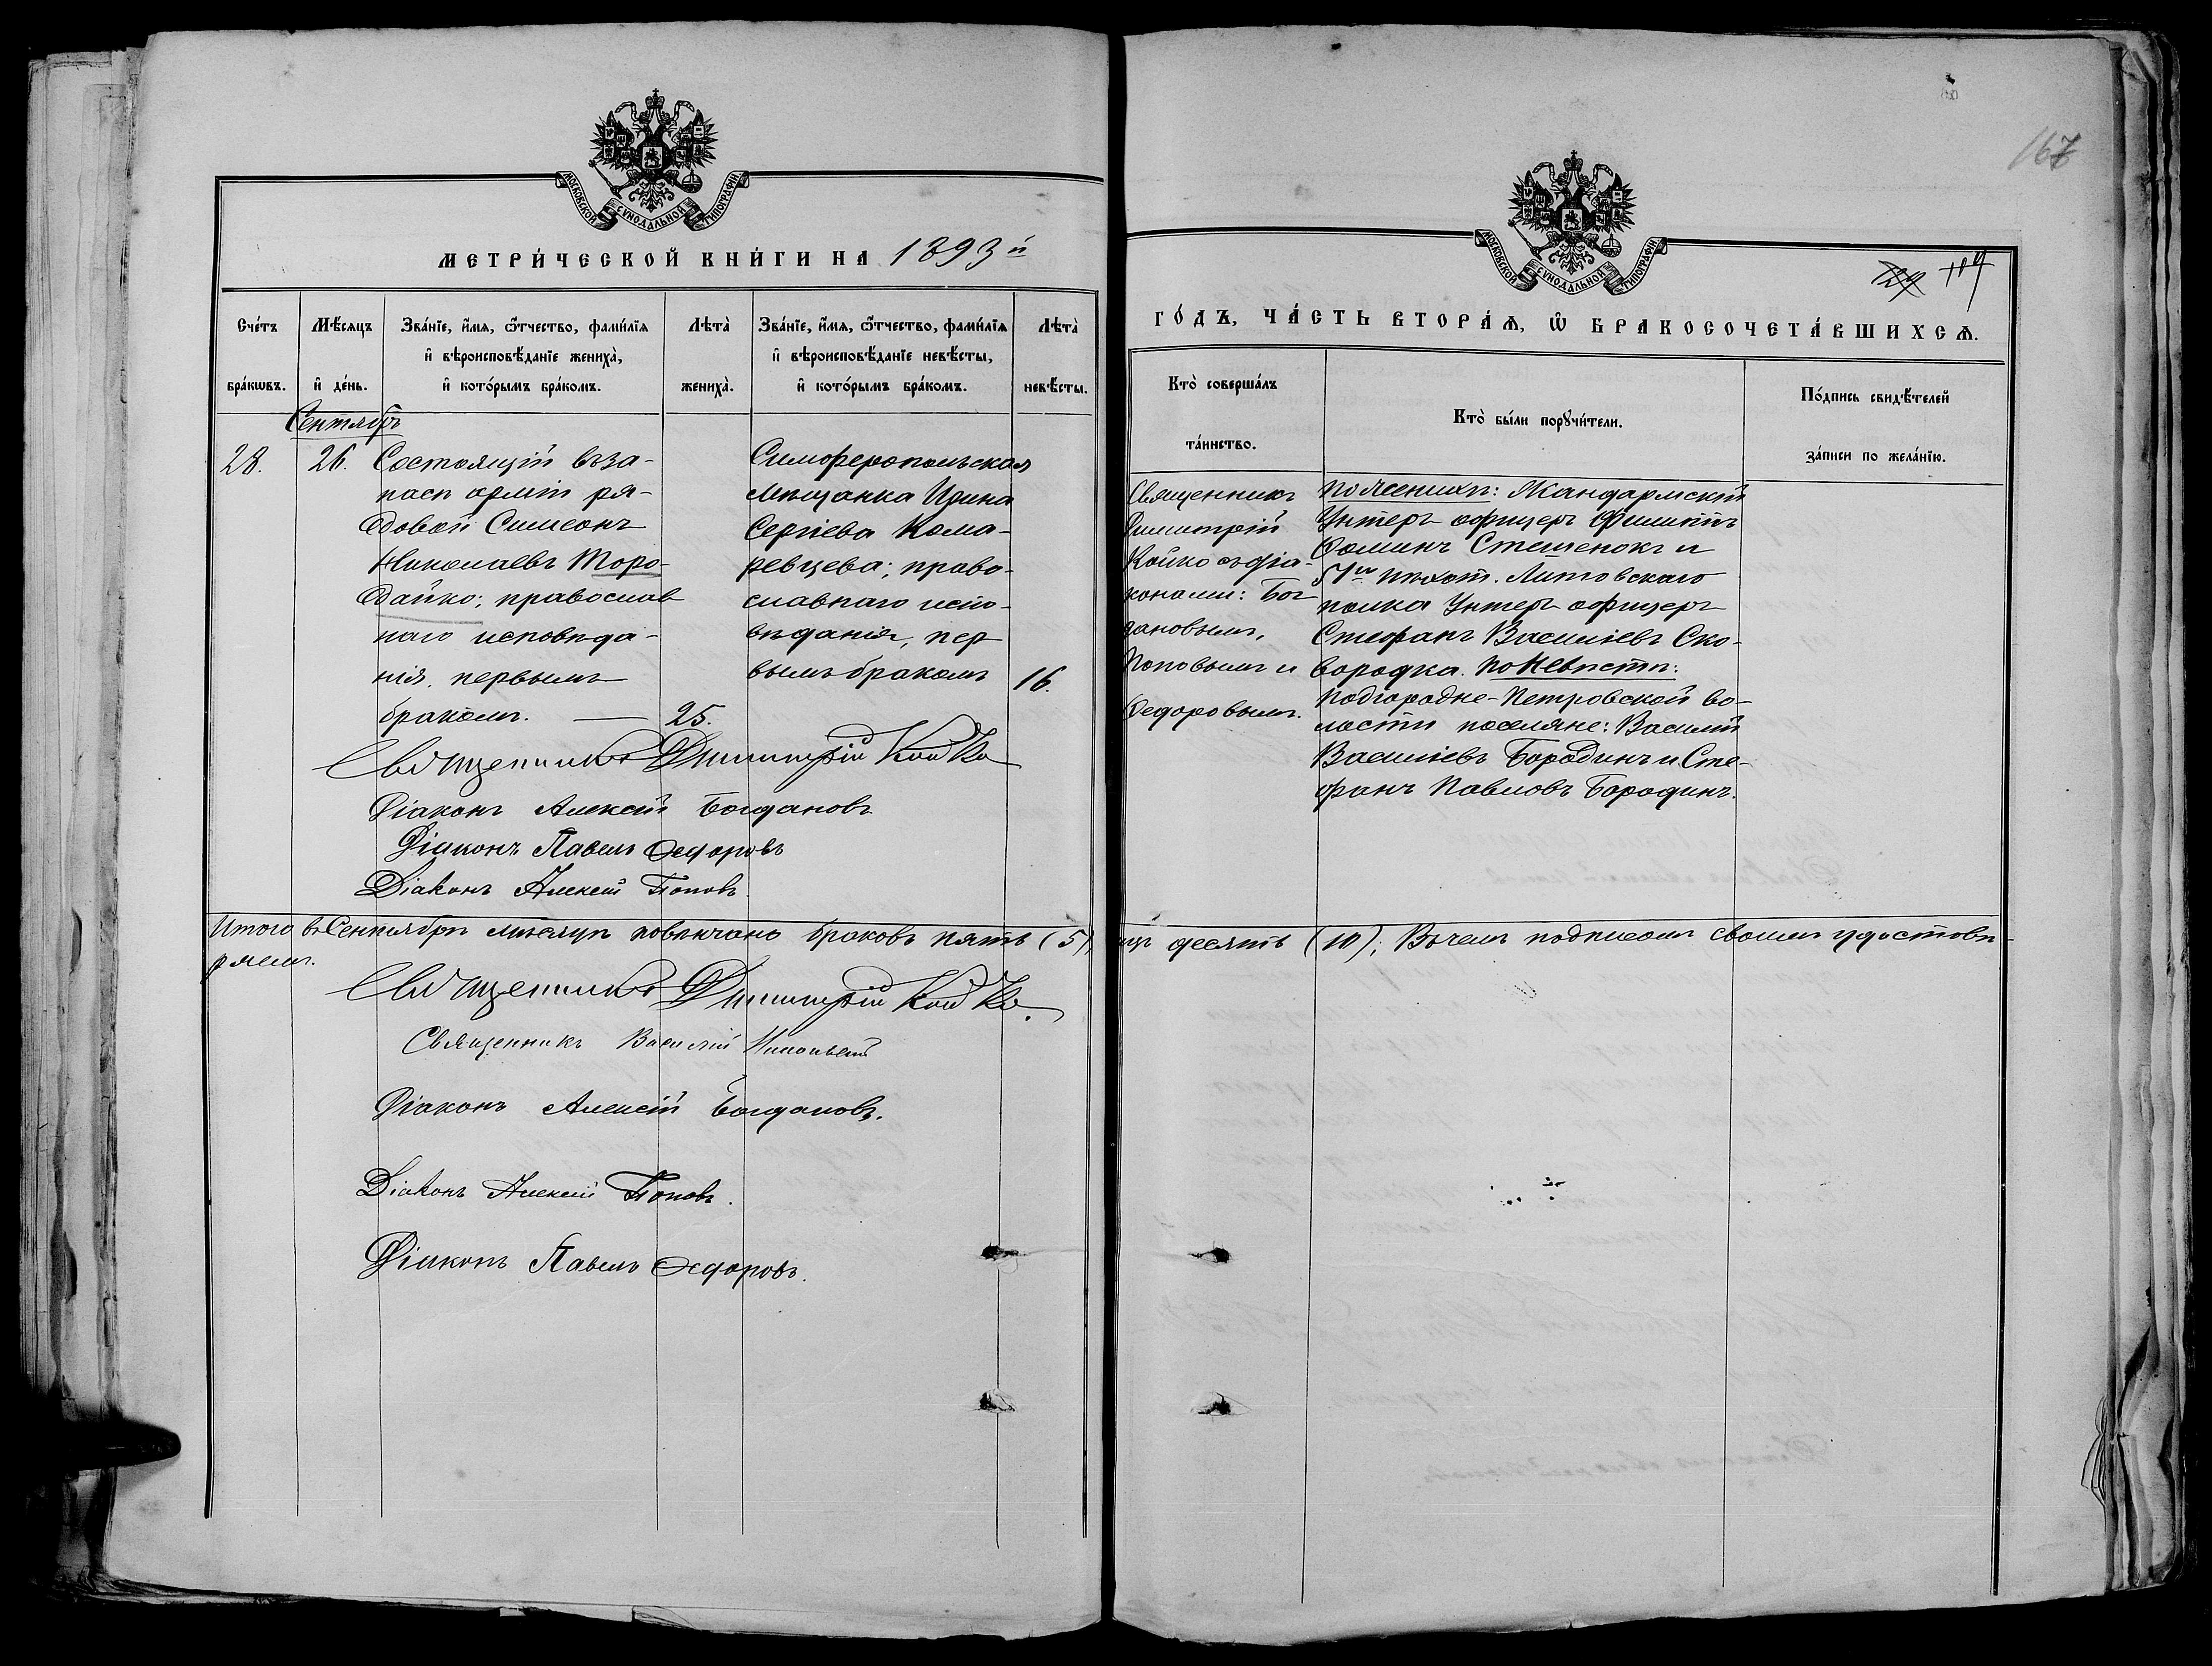 МОСКОВСКОЙ СѴНОДАЛЬНОЙ ТИПОГРАФІИ
МЕТРИ́ЧЕСКОЙ КНИ́ГИ НА 1893й
Сче́тъ бра́кωвъ.
Мѣ́сяцъ и҆ де́нь.
Зва́нїе, и҆́мѧ, ѻ҆́тчество, фами́лїѧ
и҆ вѣроисповѣ́данїе жениха̀,
и҆ кото́рымъ бра́комъ.
Лѣта̀ жениха̀.
Зва́нїе, и҆́мѧ, ѻ҆́тчество, фами́лїѧ
и҆ вѣроисповѣ́данїе невѣ́сты,
и҆ кото́рымъ бра́комъ.
Лѣта̀ невѣ́сты.
Сентябрь
28.
26.
Состоящій въ за-
пасѣ арміи ря-
довой Симеонъ
Николаевъ Торо-
дайко; православ
наго исповѣда-
нія, первымъ
бракомъ. — 25.
Симферопольская
мѣщанка Ирина
Сергіева Кома-
ревцева; право-
славнаго испо-
вѣданія, пер
вымъ бракомъ
16.
Священникъ Димитрій Койко
Діаконъ Алексій Богдановъ
Діаконъ Павелъ Федоровъ
Діаконъ Алексій Поповъ.
Итого въ Сентябрѣ мѣсяцѣ повѣнчано браковъ пять (5),
ряемъ.
Священникъ Димитрій Койко.
Священникъ Василій
Діаконъ Алексій Богдановъ.
Діаконъ Алексій Поповъ.
Діаконъ Павелъ Федоровъ.
167
МОСКОВСКОЙ СѴНОДАЛЬНОЙ ТИПОГРАФІИ
129
ГО́ДЪ, ЧА́СТЬ ВТОРА́Ѧ, Ѡ҆ БРАКОСОЧЕТА́ВШИХСѦ.
Кто̀ соверша́лъ
та́инство.
Кто̀ бы́ли порꙋчи́тели.
По́дпись свидѣ́телей
за́писи по жела́нїю.
Священникъ
Димитрій
Койко съ діа-
конами: Бог
дановымъ,
Поповымъ и
Федоровымъ.
По женихѣ: Жандармскій
Унтеръ офицеръ Филиппъ
Фоминъ Стешенокъ и
51го пѣхот. Литовскаго
полка Унтеръ офицеръ
Стефанъ Василіевъ Ско-
вородка. По Невѣстѣ:
Подгородне-Петровской во-
лости поселяне: Василій
Василіевъ Бородинъ и Сте-
фанъ Павловъ Бородинъ.
лицъ десять (10); Въ чемъ подписомъ своимъ удостовѣ-